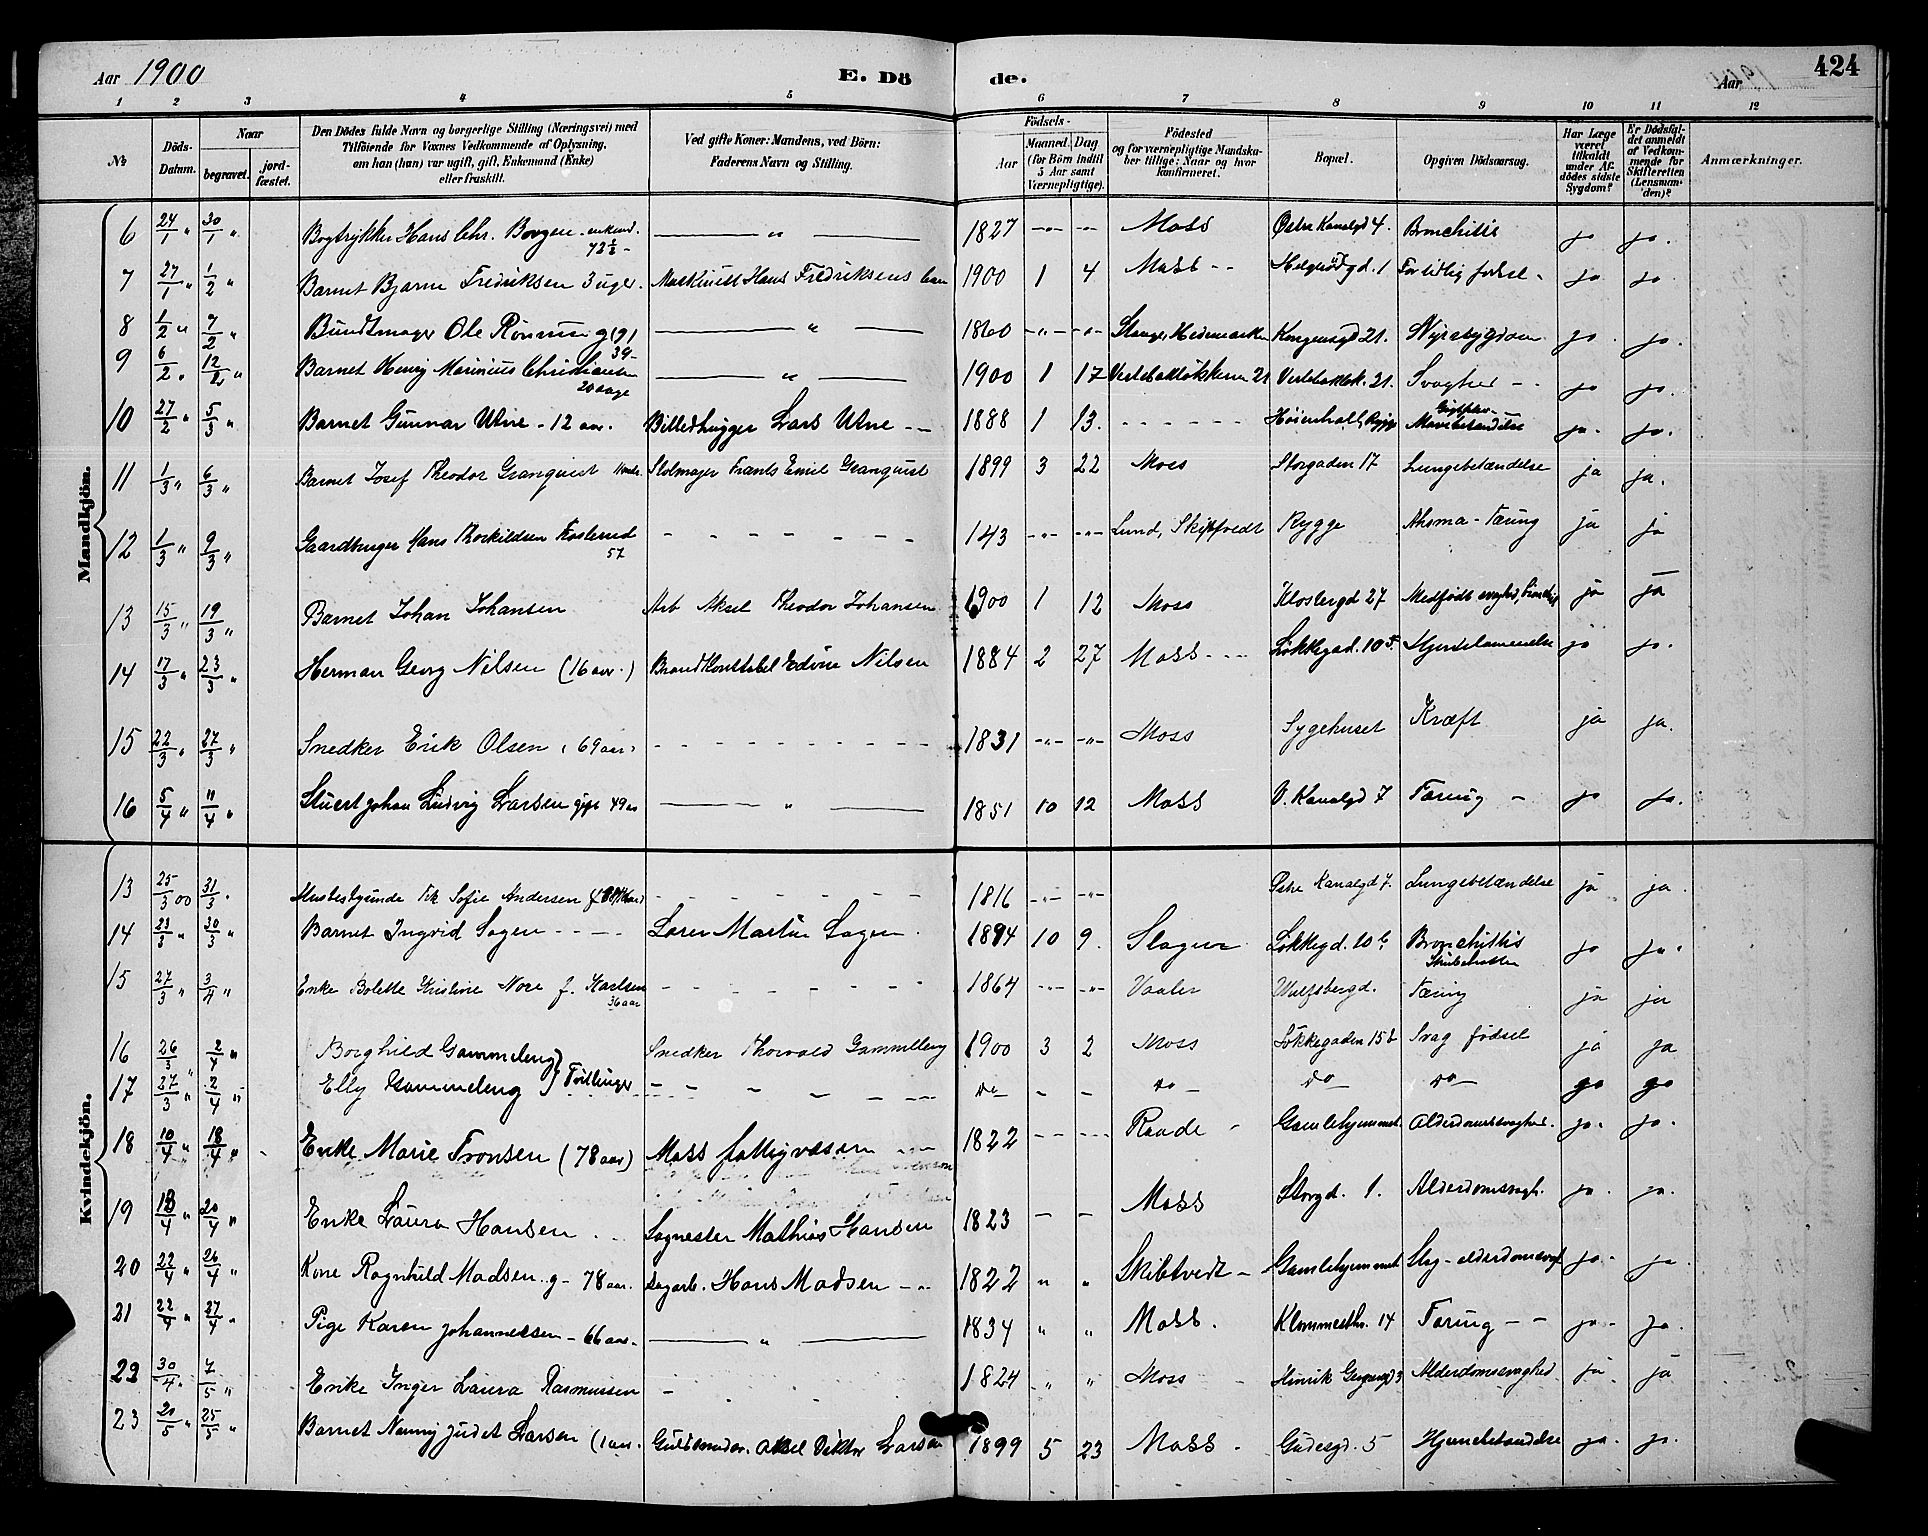 Aar 1900
E. Döde.
Aar
424
1 2 3 4 5 6 7 8 9 10 11 12
No
Döds-Datum.
Naar
begravet.
jord-fæstet.
Den Dödes fulde Navn og borgerlige Stilling (Næringsvei) med
Tilföiende for Voxnes Vedkommende af Oplysning,
om han (hun) var ugift, gift, Enkemand (Enke)
eller fraskilt.
Ved gifte Koner: Mandens, ved Börn:
Faderens Navn og Stilling.
Födsels-
Aar
Maaned. Dag
(for Börn indtil
5 Aar samt
Værnepligtige).
Födested
og for værnepligtige Mandska-
ber tillige: Naar og hvor
konfirmeret.
Bopæl.
Opgiven Dödsaarsag.
Har Læge
været
tilkaldt
under Af-
dödes sidste
Sygdom?
Er Dödsfal-
det anmeldt
af Vedkom-
mende for
Skifteretten
(Lensman-
den)?
Anmærkninger.
Mandkjön.
6 24/1 " 30/1 " Bogtrykker Hans Chr. Borgen - enkem. 72½ - — " — 1827 -"- -"- Moss Østre Kanalgd 4. Bronchitis ja ja.
7 27/1 " 1/2 " Barnet Bjarne Fredriksen 3 uger. Maskinist Hans Fredriksens 1900 1 4 Moss -- 1 For tidlig fødsel - ja ja
8 1/2 " 7/2 " Bundtmager Ole Rönning 39- — " — 1860 -"- -"- Stange, Hedemarken Kongensgd 21. Nyresygdom ja. ja.
9 6/2 " 12/2 " Barnet Henry Marinius Christiansen 20 dage — " — 1900 1 17 21 21. Svaghed -- ja ja.
10 27/2 " 5/3 " Barnet Gunnar Utne - 12 aar. Billedhugger Lars Utne -- 1888 1 13. - - - - - - Rygge Mavebetændelse ja. ja.
11 1/3 " 6/3 " Barnet Josef Theodor Granquist Stolmager Frants Emil Granquist 1899 3 22 Moss Storgaden 17 Lungebetændelse ja ja.
12 1/3 " 9/3 " Gaardbruger Hans Thorkildsen 57 - - - - - - - 143 -"- -"- Lund, Skiptvedt Rygge Tæring ja ja
13 15/3 " 19/3 " Barnet Johan Johansen Arb Aksel Theodor Johansen 1900 1 12 Moss Klostergd 27 Medfødt svaghed, ja ja
14 17/3 " 23/3 " Herman Georg Nilsen (16 aar.) Brandkonstabel Edvin Nilsen 1884 2 27 Moss -- Løkkegad. 10 Hjertelammelse ja ja.
15 22/3 " 27/3 " Snedker Erik Olsen (69 aar) - - - - - - - 1831 -"- -"- Moss Sygehuset Kræft ja ja.
16 5/4 " 11/4 " Stuert Johan Ludvig Larsen gift 49 aar — " — 1851 10 12 Moss V. Kanalgd 7 Tæring - ja ja.
Kvindekjön.
13 25/3 00 31/3 " Sofie Andersen - - - - - - 1816 -"- -"- Kanalgd 7. Lungebetændelse ja ja.
14 23/3 " 30/3 " Barnet Ingvid Sogen - - - - Martin Sogen. 1894 10 9. Slagen Løkkegd. 10 Bronchittis ja ja.
15 27/3 " 3/4 " Enke Bolette Kristine Nore f. Karlsen 36 aar - - - - - - - 1864 -"- -"- Vaaler Wulfsbergd. Tæring ja ja
16 26/3 " 2/4 " Borghild Gammeleng Snedker Thorvald Gammelleng 1900 3 2 Moss Løkkegaden 15 b Svag fødsel ja ja
17 27/3 " 2/4 " Elly Gammeleng } Tvillinger - - - - - do - - do - do - do - ja ja
18 10/4 " 18/4 " Enke Marie Tronsen (78 aar) Moss fattigvæsen -"- 1822 -- -- Raade - Gamlehjemmet Alderdomssvaghed. ja. ja.
19 13/4 " 20/4 " Enke Laura Hansen .. Mathias Hansen 1823 - - Moss Storgd. 1. Alderdomssvagh. ja. ja.
20 22/4 " 26/4 " Kone Ragnhild Madsen g- 78 aar. Dagarb. Hans Madsen -"- 1822 " " Skibtvedt - Gamlehjemmet Slag - alderdomssvagh ja. ja.
21 22/4 " 27/4 " Pige Karen Johannessen - 66 aar. — " — 1834 " " Moss. 14 Tæring -- ja - ja.
22 30/4 " 7/5 " Enke Inger Laura Rasmussen - 1824 " " Moss - Henrik Gernersgd 3 Alderdomssvaghed ja. ja
23 20/5 " 25/5 " Barnet Nanny Judet Larsen (1 aar. Guldsmedsv. Aksel Viktor Larsen 1899 5 23 Moss - Gudesgd. 5 Hjernebetændelse ja. ja.